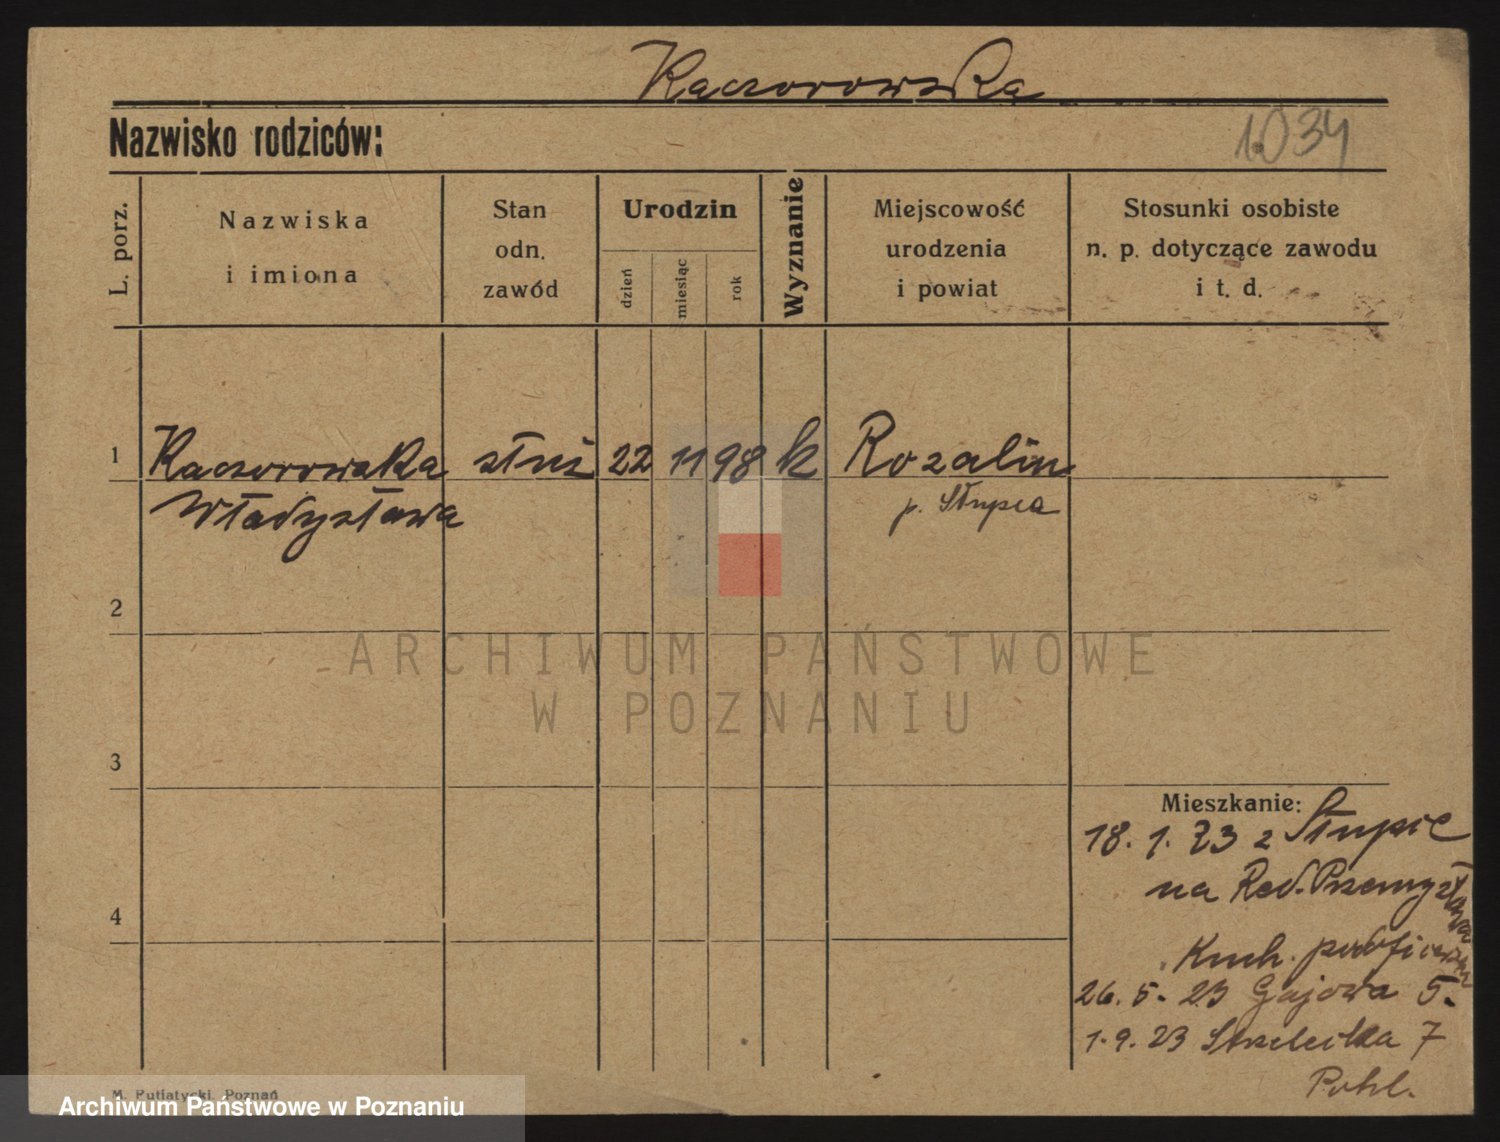 Kaczorowska
Nazwisko rodziców:
1.034
L. porz.
Nazwiska
i imiona
Stan
odn.
zawód
Urodzin
dzień
miesiąc
rok
Wyznanie
Miejscowość
urodzenia
i powiat
Stosunki osobiste
n. p. dotyczące zawodu
i t. d.
1 Kaczorowska służ 22 11 98 k Rozalin
Władysława p. Słupca
2
ARCHIWUM PAŃSTWOWE
W POZNANIU
3
Mieszkanie:
18. 1. 23 z Słupcę
na Red. Przemysława
4
Kuch. podficerska
26. 5. 23 Gajowa 5.
1. 9. 23 Strzelecka 7
Pohl.
M. Putiatycki, Poznań
Archiwum Państwowe w Poznaniu